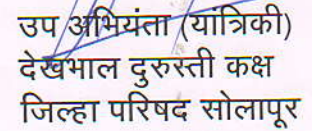 उप अभियंता (यांत्रिकी)
देखभाल दुरुस्ती कक्ष
जिल्हा परिषद सोलापूर